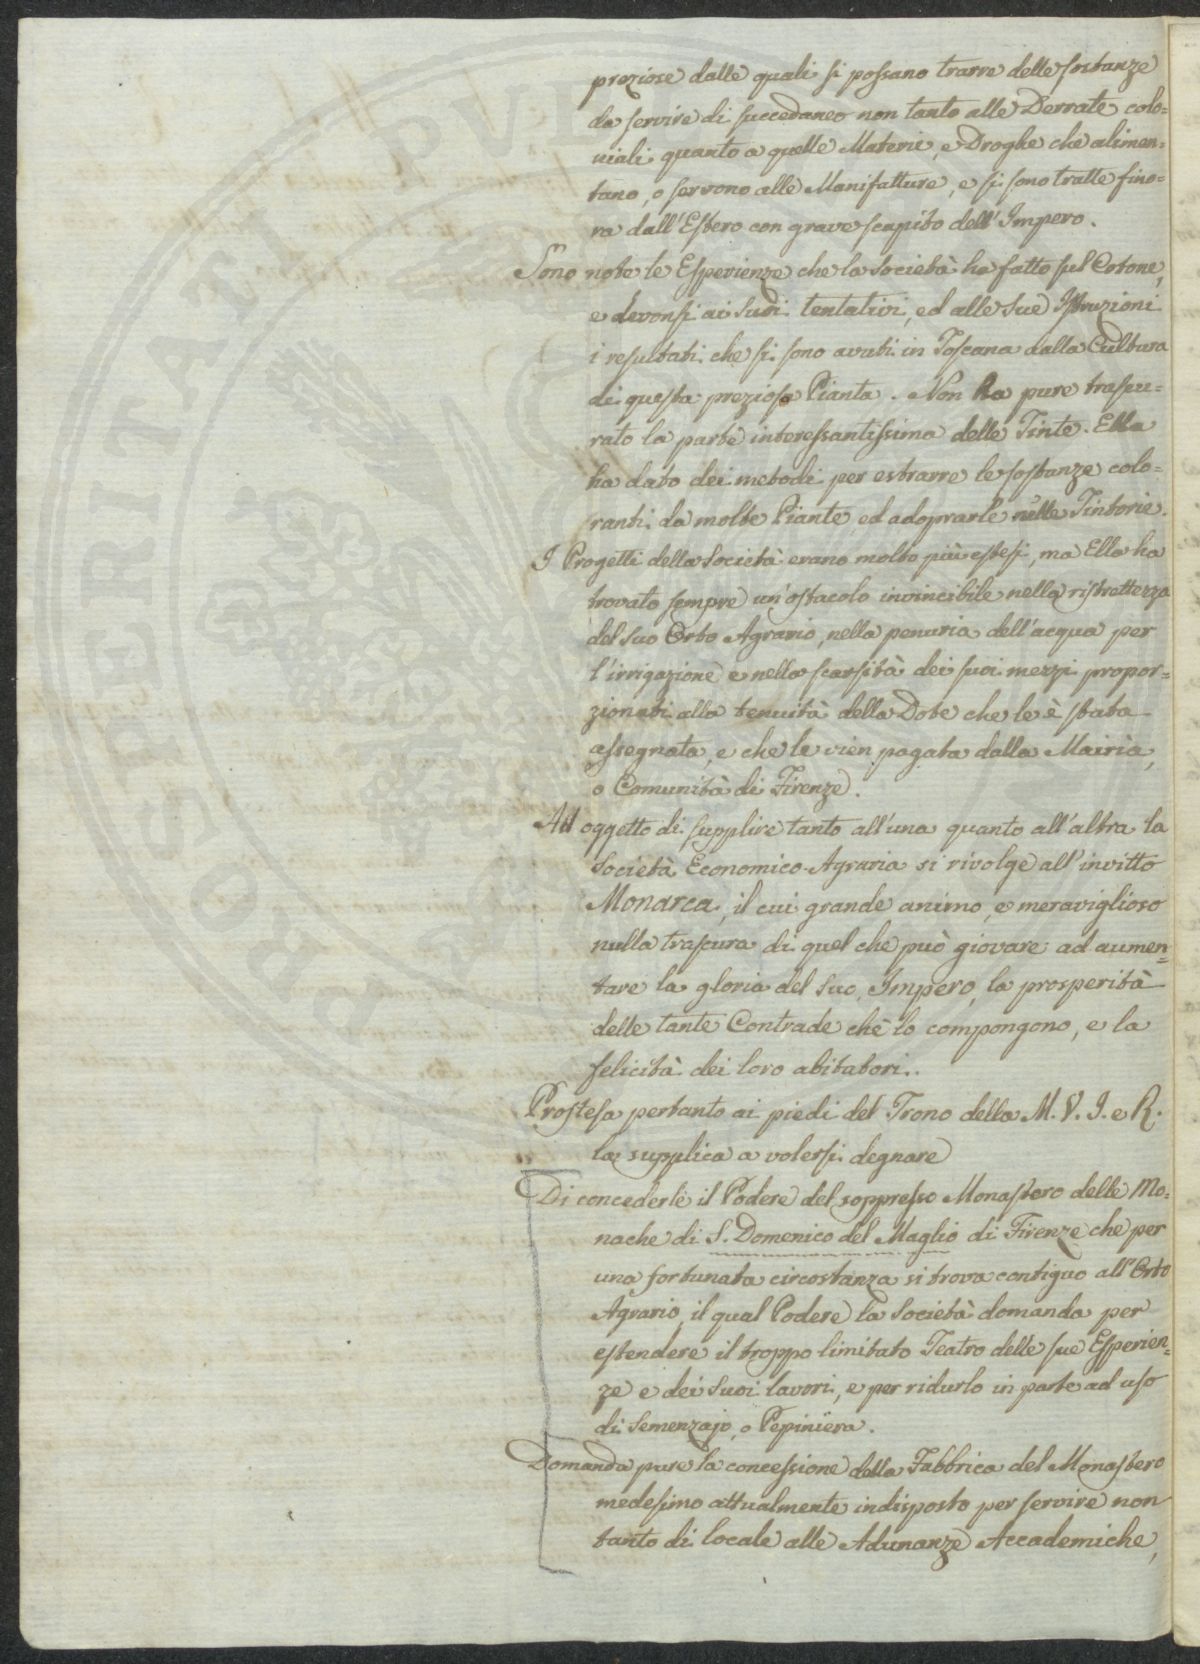 preziose dalle quali si possano trarre delle sostanze
da servire di succedaneo non tanto alle Derrate colo=
niali quanto a quelle Materie, e Droghe che alimen=
tano, o servono alle Manifatture, e si sono tratte fino=
ra dall'Estero con grave scapito dell'Impero.
Sono note le Esperienze che la Società ha fatto sul Cotone,
e devonsi ai suoi tentativi, ed alle sue Istruzioni
i resultati che si sono avuti in Toscana dalla Cultura
di questa preziosa Pianta. Non ha pure trascu=
rato la parte interessantissima delle Tinte. Ella
ha dato dei metodi per estrarre le sostanze colo=
ranti da molte Piante, ed adoprarle nelle Tintorie.
I Progetti della Società erano molto più estesi, ma Ella ha
trovato sempre un'ostacolo invincibile nella ristrettezza
del suo Orto Agrario, nella penuria dell'acqua per
l'irrigazione e nella scarsità dei suoi mezzi propor=
zionati alla tenuità della Dote che le è stata
assegnata, e che le vien pagata dalla Mairìa,
o Comunità di Firenze.
Ad oggetto di supplire tanto all'una quanto all'altra la
Società Economico-Agraria si rivolge all'invitto
Monarca, il cui grande animo, e meraviglioso
nulla trascura di quel che può giovare ad aumen=
tare la gloria del suo Impero, la prosperità
delle tante Contrade chè lo compongono, e la
felicità dei loro abitatori.
Prostesa pertanto ai piedi del Trono della M. V. I. e R.
la supplica a volersi degnare
Di concederle il Podere del soppresso Monastero delle Mo=
nache di S. Domenico del Maglio di Firenze che per
una fortunata circostanza si trova contiguo all'Orto
Agrario, il qual Podere la Società domanda per
estendere il troppo limitato Teatro delle sue Esperien=
ze e dei suoi lavori, e per ridurlo in parte ad uso
di Semenzajo, o Pepiniera.
Domanda pure la concessione della Fabbrica del Monastero
medesimo attualmente indisposto per servire non
tanto di locale alle Adunanze Accademiche,